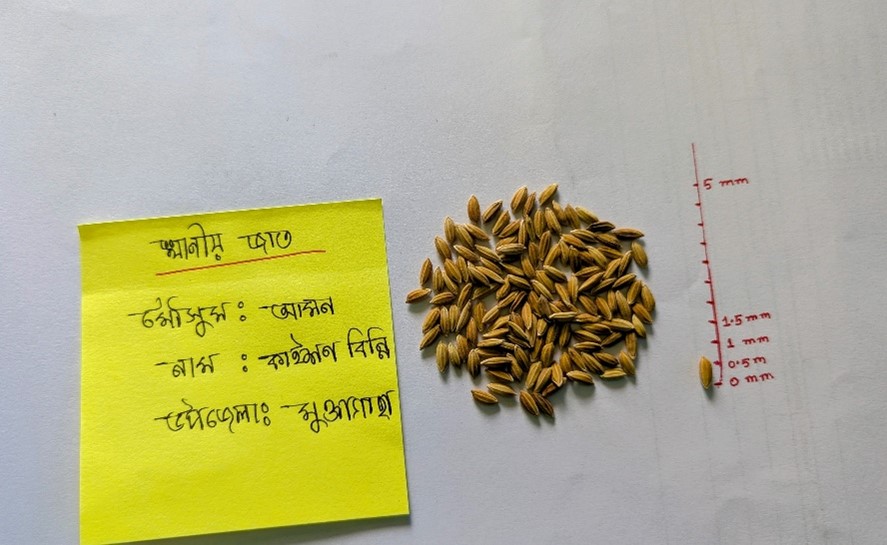 স্থানীয় জাত
মৌসুম : আমন
নাম : কাইশন বিন্নি
উপজেলাঃ মুক্তাগাছা
5 mm
1.5 mm
1 mm
0.5 m
0 mm